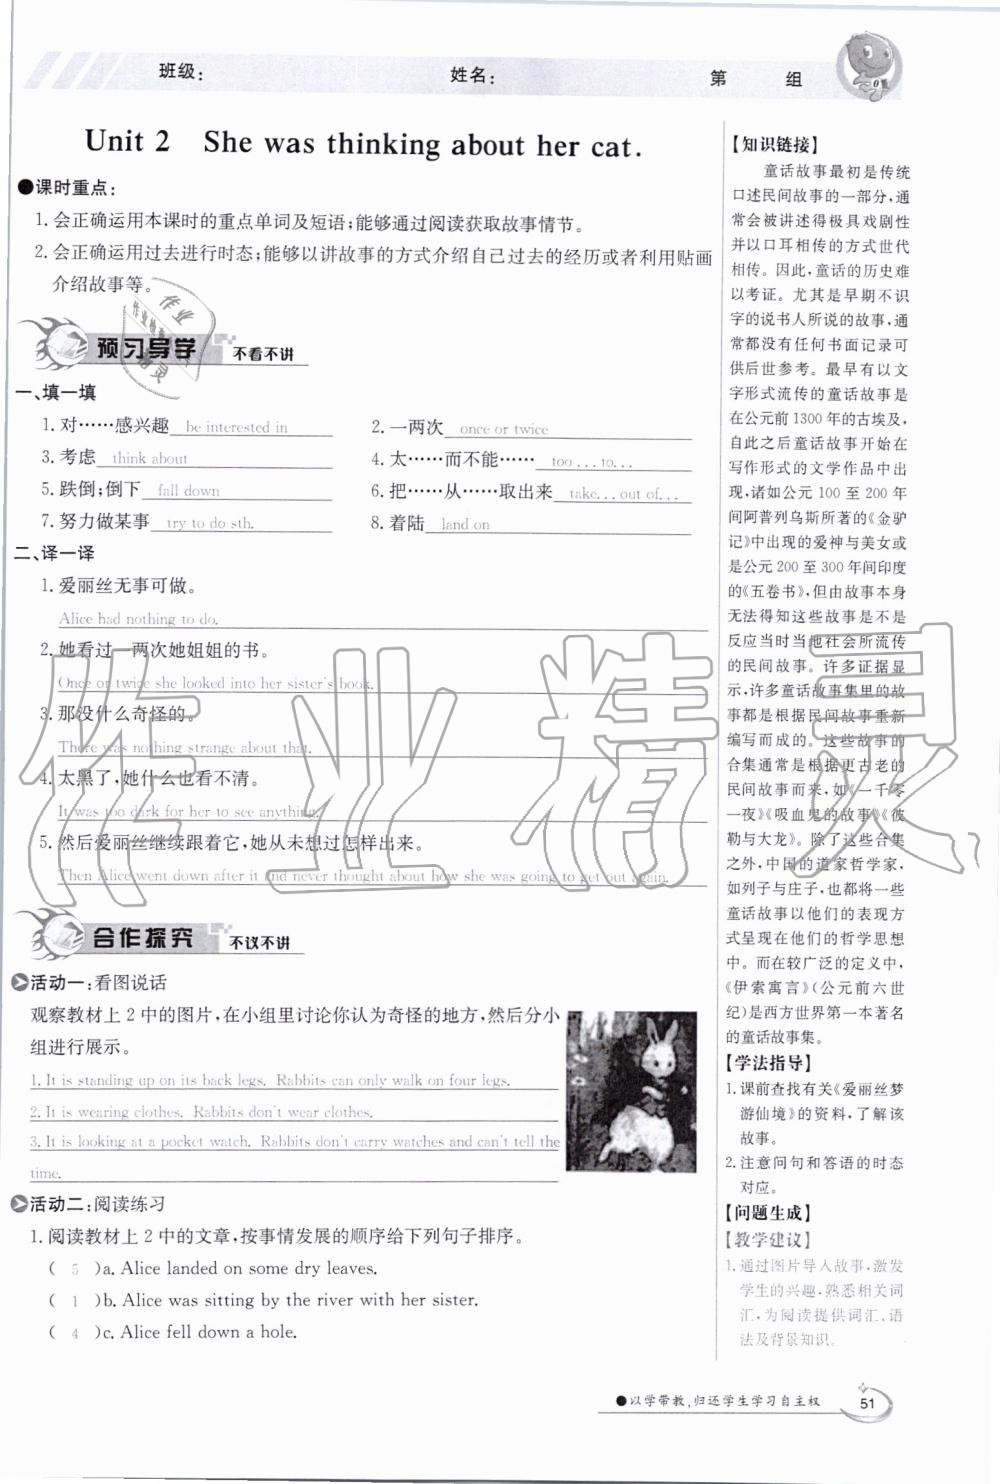 班级：　　　姓名：　　　第　　组
Unit 2　She was thinking about her cat.
●课时重点：
1. 会正确运用本课时的重点单词及短语；能够通过阅读获取故事情节。
2. 会正确运用过去进行时态；能够以讲故事的方式介绍自己过去的经历或者利用贴画
介绍故事等。
预习导学　不看不讲
一、填一填
1. 对……感兴趣 be interested in　2. 一两次 once or twice
3. 考虑 think about　4. 太……而不能…… too...to...
5. 跌倒；倒下 fall down　6. 把……从……取出来 take...out of...
7. 努力做某事 try to do sth.　8. 着陆 land on
二、译一译
1. 爱丽丝无事可做。
Alice had nothing to do.
2. 她看过一两次她姐姐的书。
Once or twice she looked into her sister's book.
3. 那没什么奇怪的。
There was nothing strange about that.
4. 太黑了，她什么也看不清。
It was too dark for her to see anything.
5. 然后爱丽丝继续跟着它，她从未想过怎样出来。
Then Alice went down after it and never thought about how she was going to get out again.
合作探究　不议不讲
活动一：看图说话
观察教材上 2 中的图片，在小组里讨论你认为奇怪的地方，然后分小
组进行展示。
1. It is standing up on its back legs. Rabbits can only walk on four legs.
2. It is wearing clothes. Rabbits don't wear clothes.
3. It is looking at a pocket watch. Rabbits don't carry watches and can't tell the
time.
活动二：阅读练习
1. 阅读教材上 2 中的文章，按事情发展的顺序给下列句子排序。
( 5 )a. Alice landed on some dry leaves.
( 1 )b. Alice was sitting by the river with her sister.
( 4 )c. Alice fell down a hole.
【知识链接】
童话故事最初是传统
口述民间故事的一部分，通
常会被讲述得极具戏剧性
并以口耳相传的方式世代
相传。因此，童话的历史难
以考证。尤其是早期不识
字的说书人所说的故事，通
常都没有任何书面记录可
供后世参考。最早有以文
字形式流传的童话故事是
在公元前 1300 年的古埃及，
自此之后童话故事开始在
写作形式的文学作品中出
现，诸如公元 100 至 200 年
间阿普列乌斯所著的《金驴
记》中出现的爱神与美女或
是公元 200 至 300 年间印度
的《五卷书》，但由故事本身
无法得知这些故事是不是
反应当时当地社会所流传
的民间故事。许多证据显
示，许多童话故事集里的故
事都是根据民间故事重新
编写而成的。这些故事的
合集通常是根据更古老的
民间故事而来，如《一千零
一夜》《吸血鬼的故事》《彼
勒与大龙》。除了这些合集
之外，中国的道家哲学家，
如列子与庄子，也都将一些
童话故事以他们的表现方
式呈现在他们的哲学思想
中。而在较广泛的定义中，
《伊索寓言》（公元前六世
纪）是西方世界第一本著名
的童话故事集。
【学法指导】
1. 课前查找有关《爱丽丝梦
游仙境》的资料，了解该
故事。
2. 注意问句和答语的时态
对应。
【问题生成】
【教学建议】
1. 通过图片导入故事，激发
学生的兴趣，熟悉相关词
汇，为阅读提供词汇、语
法及背景知识。
●以学带教，归还学生学习自主权　51
作业精灵